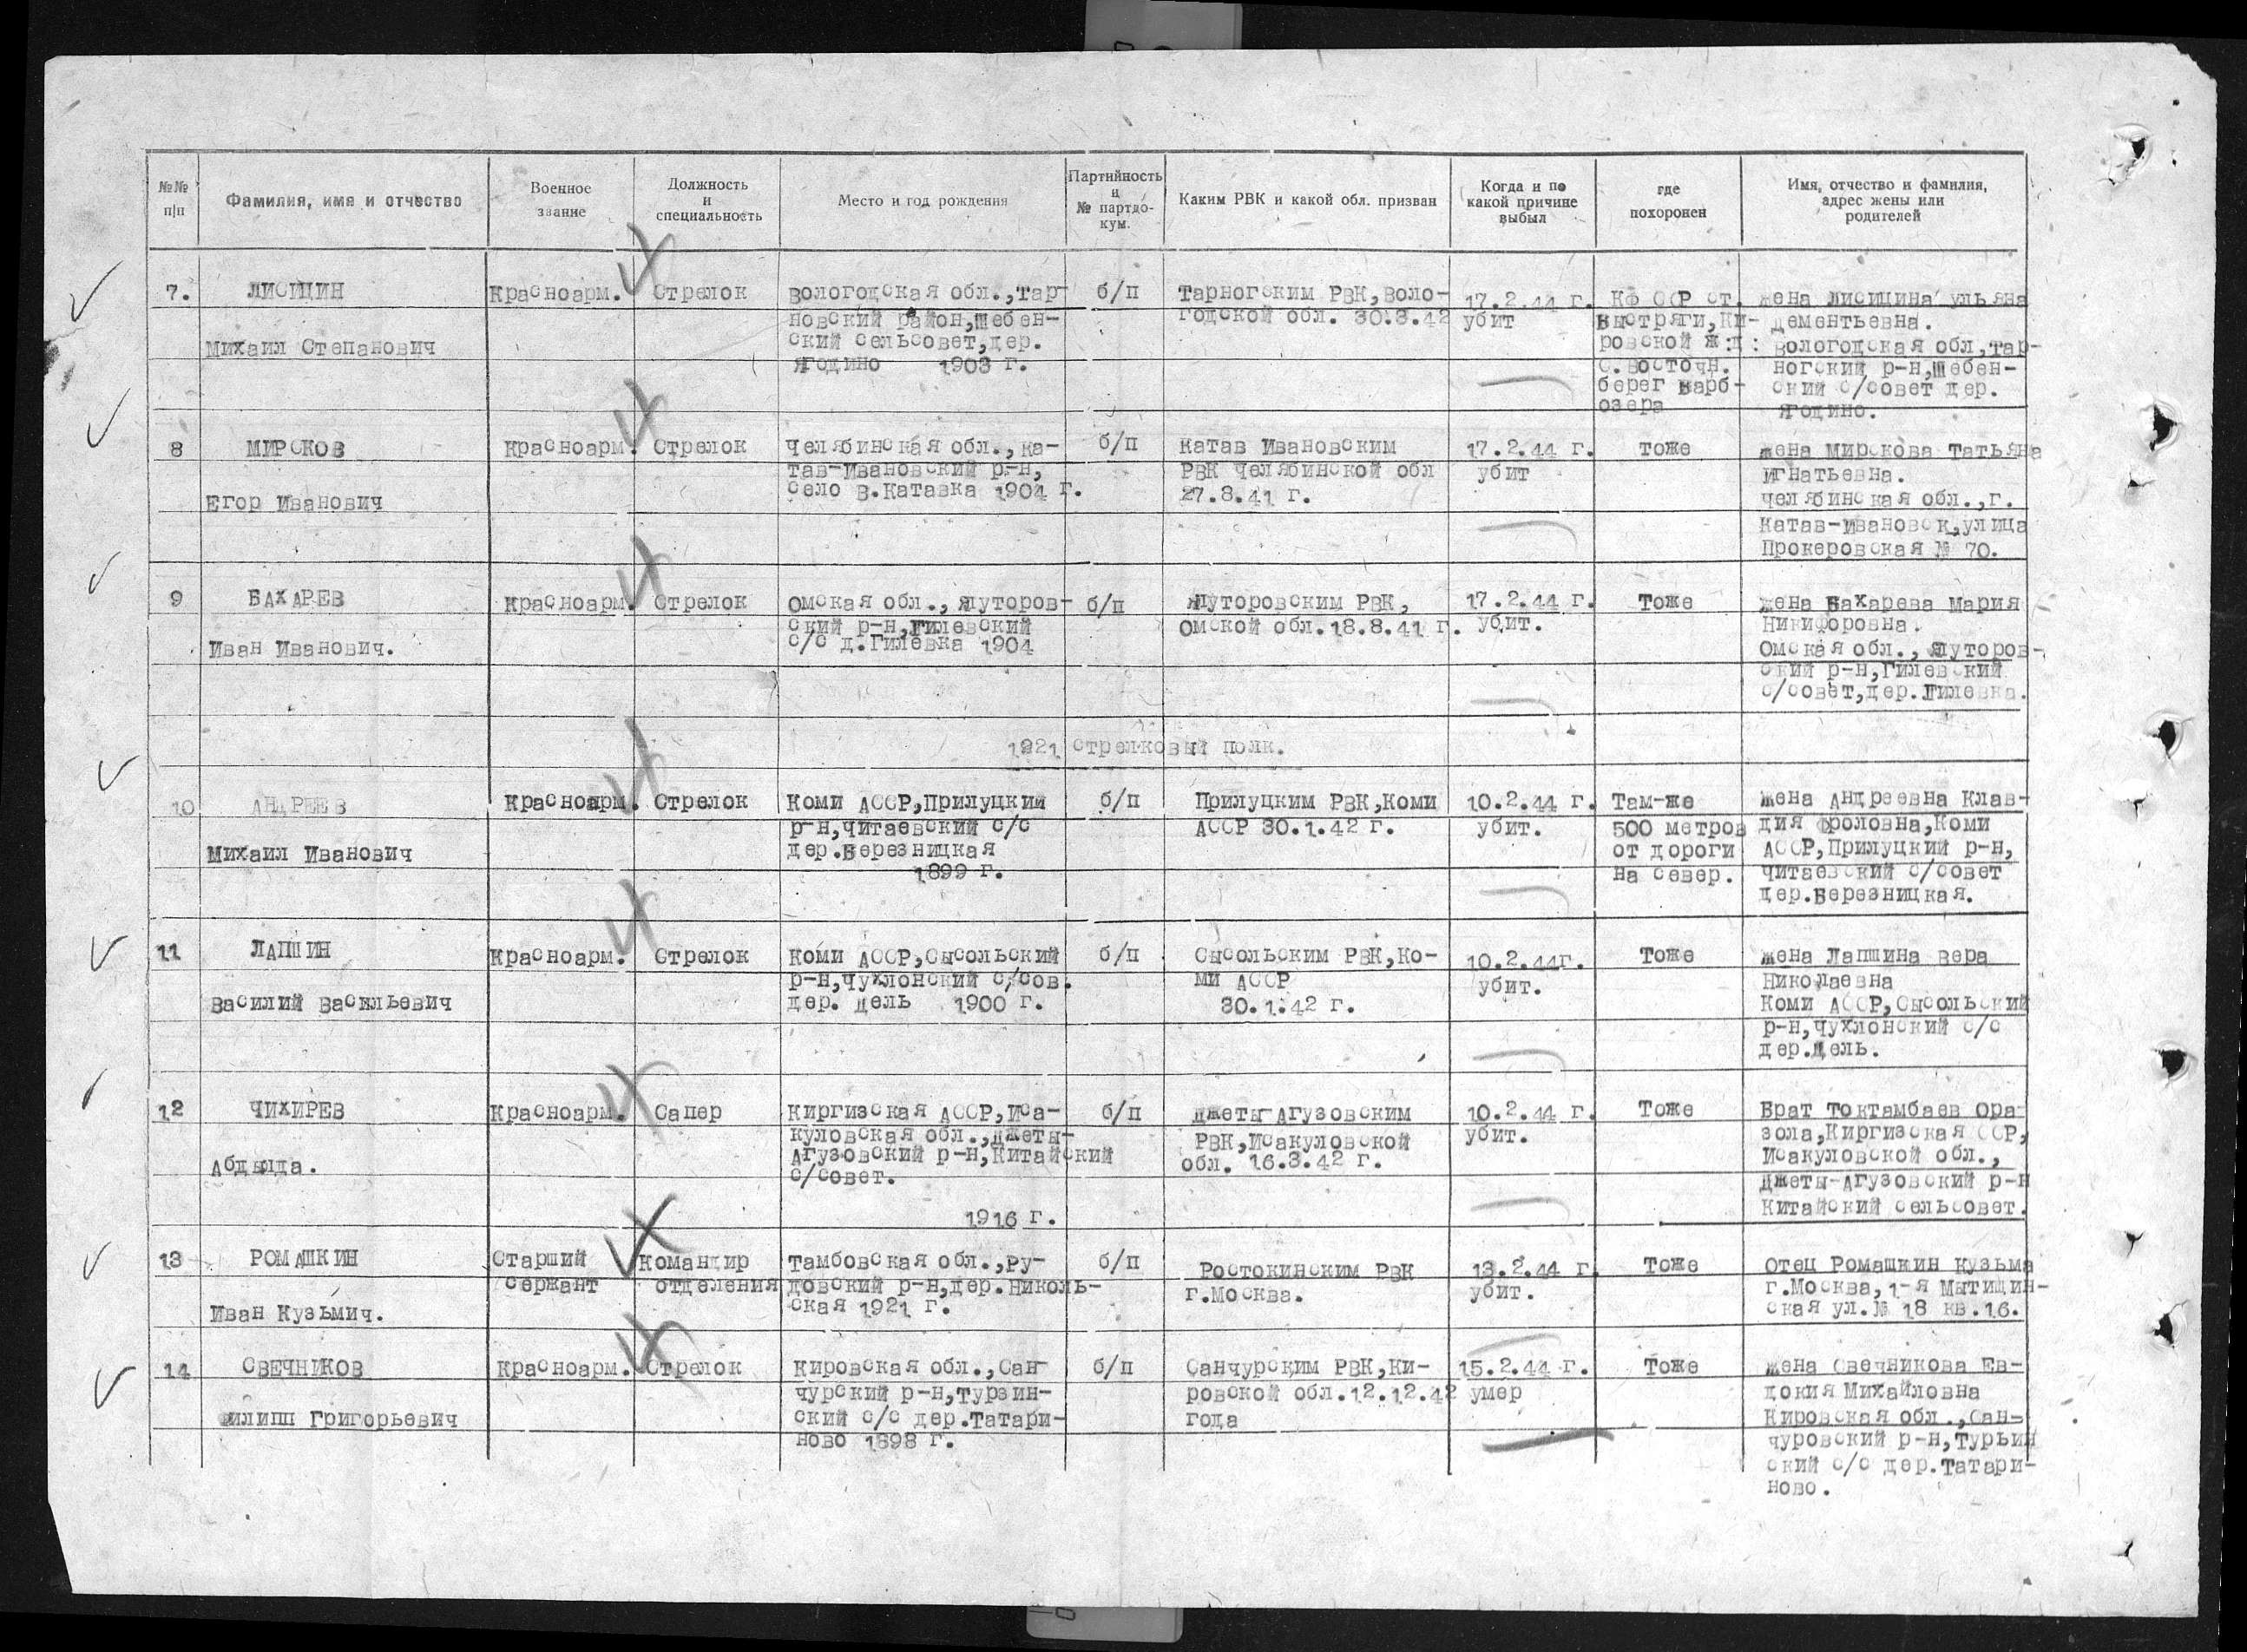 №№ п/п
Фамилия, имя и отчество
Военное звание
Должность и специальность
Место и год рождения
Партийность и № партдокум.
Каким РВК и какой обл. призван
Когда и по какой причине выбыл
где похоронен
Имя, отчество и фамилия, адрес жены или родителей
7.
ЛИСИЦИН
Михаил Степанович
Красноарм.
Стрелок
Вологодская обл.,Тар-
новский район,Шебен-
ский сельсовет,дер.
Ягодино 1903 г.
б/п
Тарногским РВК,Воло-
годской обл. 30.3.42
17.2.44 г.
убит
КФ ССР ст.
Быстряги,Ки-
ровской ж.д:
с.восточн.
берег Варб-
озера
жена Лисицина Ульяна
Дементьевна.
Вологодская обл,Тар-
ногский р-н,Шебен-
ский с/совет дер.
Ягодино.
8
МИРСКОВ
Егор Иванович
Красноарм.
Стрелок
Челябинская обл.,Ка-
тав-Ивановский р-н,
село В.Катавка 1904 г.
б/п
Катав Ивановским
РВК Челябинской обл
27.8.41 г.
17.2.44 г.
убит
тоже
жена Мирскова Татьяна
Игнатьевна.
Челябинская обл.,г.
Катав-Ивановск,улица
Прокеровская № 70.
9
БАХАРЕВ
Иван Иванович.
Красноарм.
Стрелок
Омская обл., Ялуторов-
ский р-н,Гилевский
с/с д.Гилевка 1904
б/п
Ялуторовским РВК,
Омской обл.18.8.41 г.
17.2.44 г.
убит.
Тоже
жена Бахарева Мария
Никифоровна.
Омская обл., Ялуторов-
ский р-н,Гилевский
с/совет,дер.Гилевка.
1221 стрелковый полк.
10
АНДРЕЕВ
Михаил Иванович
Красноарм.
Стрелок
Коми АССР,Прилуцкий
р-н,Читаевский с/с
дер.Березницкая
1899 г.
б/п
Прилуцким РВК,Коми
АССР 30.1.42 г.
10.2.44 г.
убит.
Там-же
500 метров
от дороги
на север.
жена Андреевна Клав-
дия Фроловна,Коми
АССР,Прилуцкий р-н,
Читаевский с/совет
дер.Березницкая.
11
ЛАПШИН
Василий Васильевич
Красноарм.
Стрелок
Коми АССР,Сысольский
р-н,Чухлонский с/сов.
дер. Дель 1900 г.
б/п
Сысольским РВК,Ко-
ми АССР
30.1.42 г.
10.2.44г.
убит.
Тоже
жена Лапшина Вера
Николаевна
Коми АССР,Сысольский
р-н,Чухлонский с/с
дер.Дель.
12
ЧИХИРЕВ
Абдылда.
Красноарм.
Сапер
Киргизская АССР,Иса-
куловская обл.,Джеты-
Агузовский р-н,Китайский
с/совет.
1916 г.
б/п
Джеты-Агузовским
РВК,Исакуловской
обл. 16.3.42 г.
10.2.44 г.
убит.
Тоже
Брат Токтамбаев Ора-
зола,Киргизская ССР,
Исакуловской обл.,
Джеты-Агузовский р-н
Китайский сельсовет.
13
РОМАШКИН
Иван Кузьмич.
Старший
сержант
Командир
отделения
Тамбовская обл.,Ру-
довский р-н,дер.Николь-
ская 1921 г.
б/п
Ростокинским РВК
г.Москва.
13.2.44 г.
убит.
Тоже
Отец Ромашкин Кузьма
г.Москва,1-я Мытищин-
ская ул.№ 18 кв.16.
14
СВЕЧНИКОВ
Филипп Григорьевич
Красноарм.
Стрелок
Кировская обл.,Сан-
чурский р-н,Турзин-
ский с/с дер.Татари-
ново 1898 г.
б/п
Санчурским РВК,Ки-
ровской обл.12.12.42
года
15.2.44 г.
умер
Тоже
жена Свечникова Ев-
докия Михайловна
Кировская обл.,Сан-
чуровский р-н,Турьин
ский с/с дер.Татари-
ново.